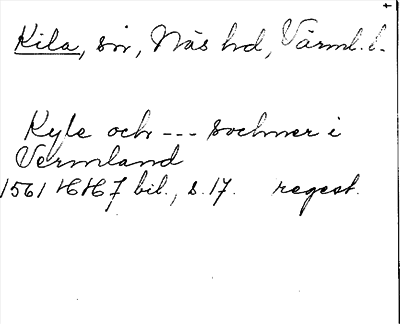 Kila, sn, Näs hd, Värml. l.
Kyle och --- sochner i
Vermland
1561 HH 7 bil., s. 17. regest.